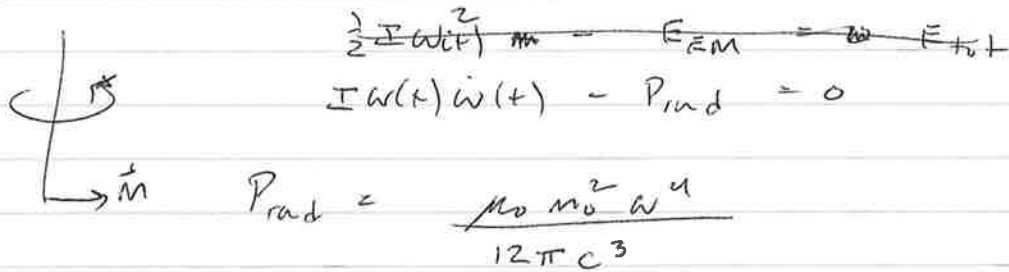 ½ I ω(t)² - E_EM = E_tot
I ω(t) ω̇(t) - P_rad = 0
m⃗
P_rad = μ₀ m₀² ω⁴ / 12 π c³